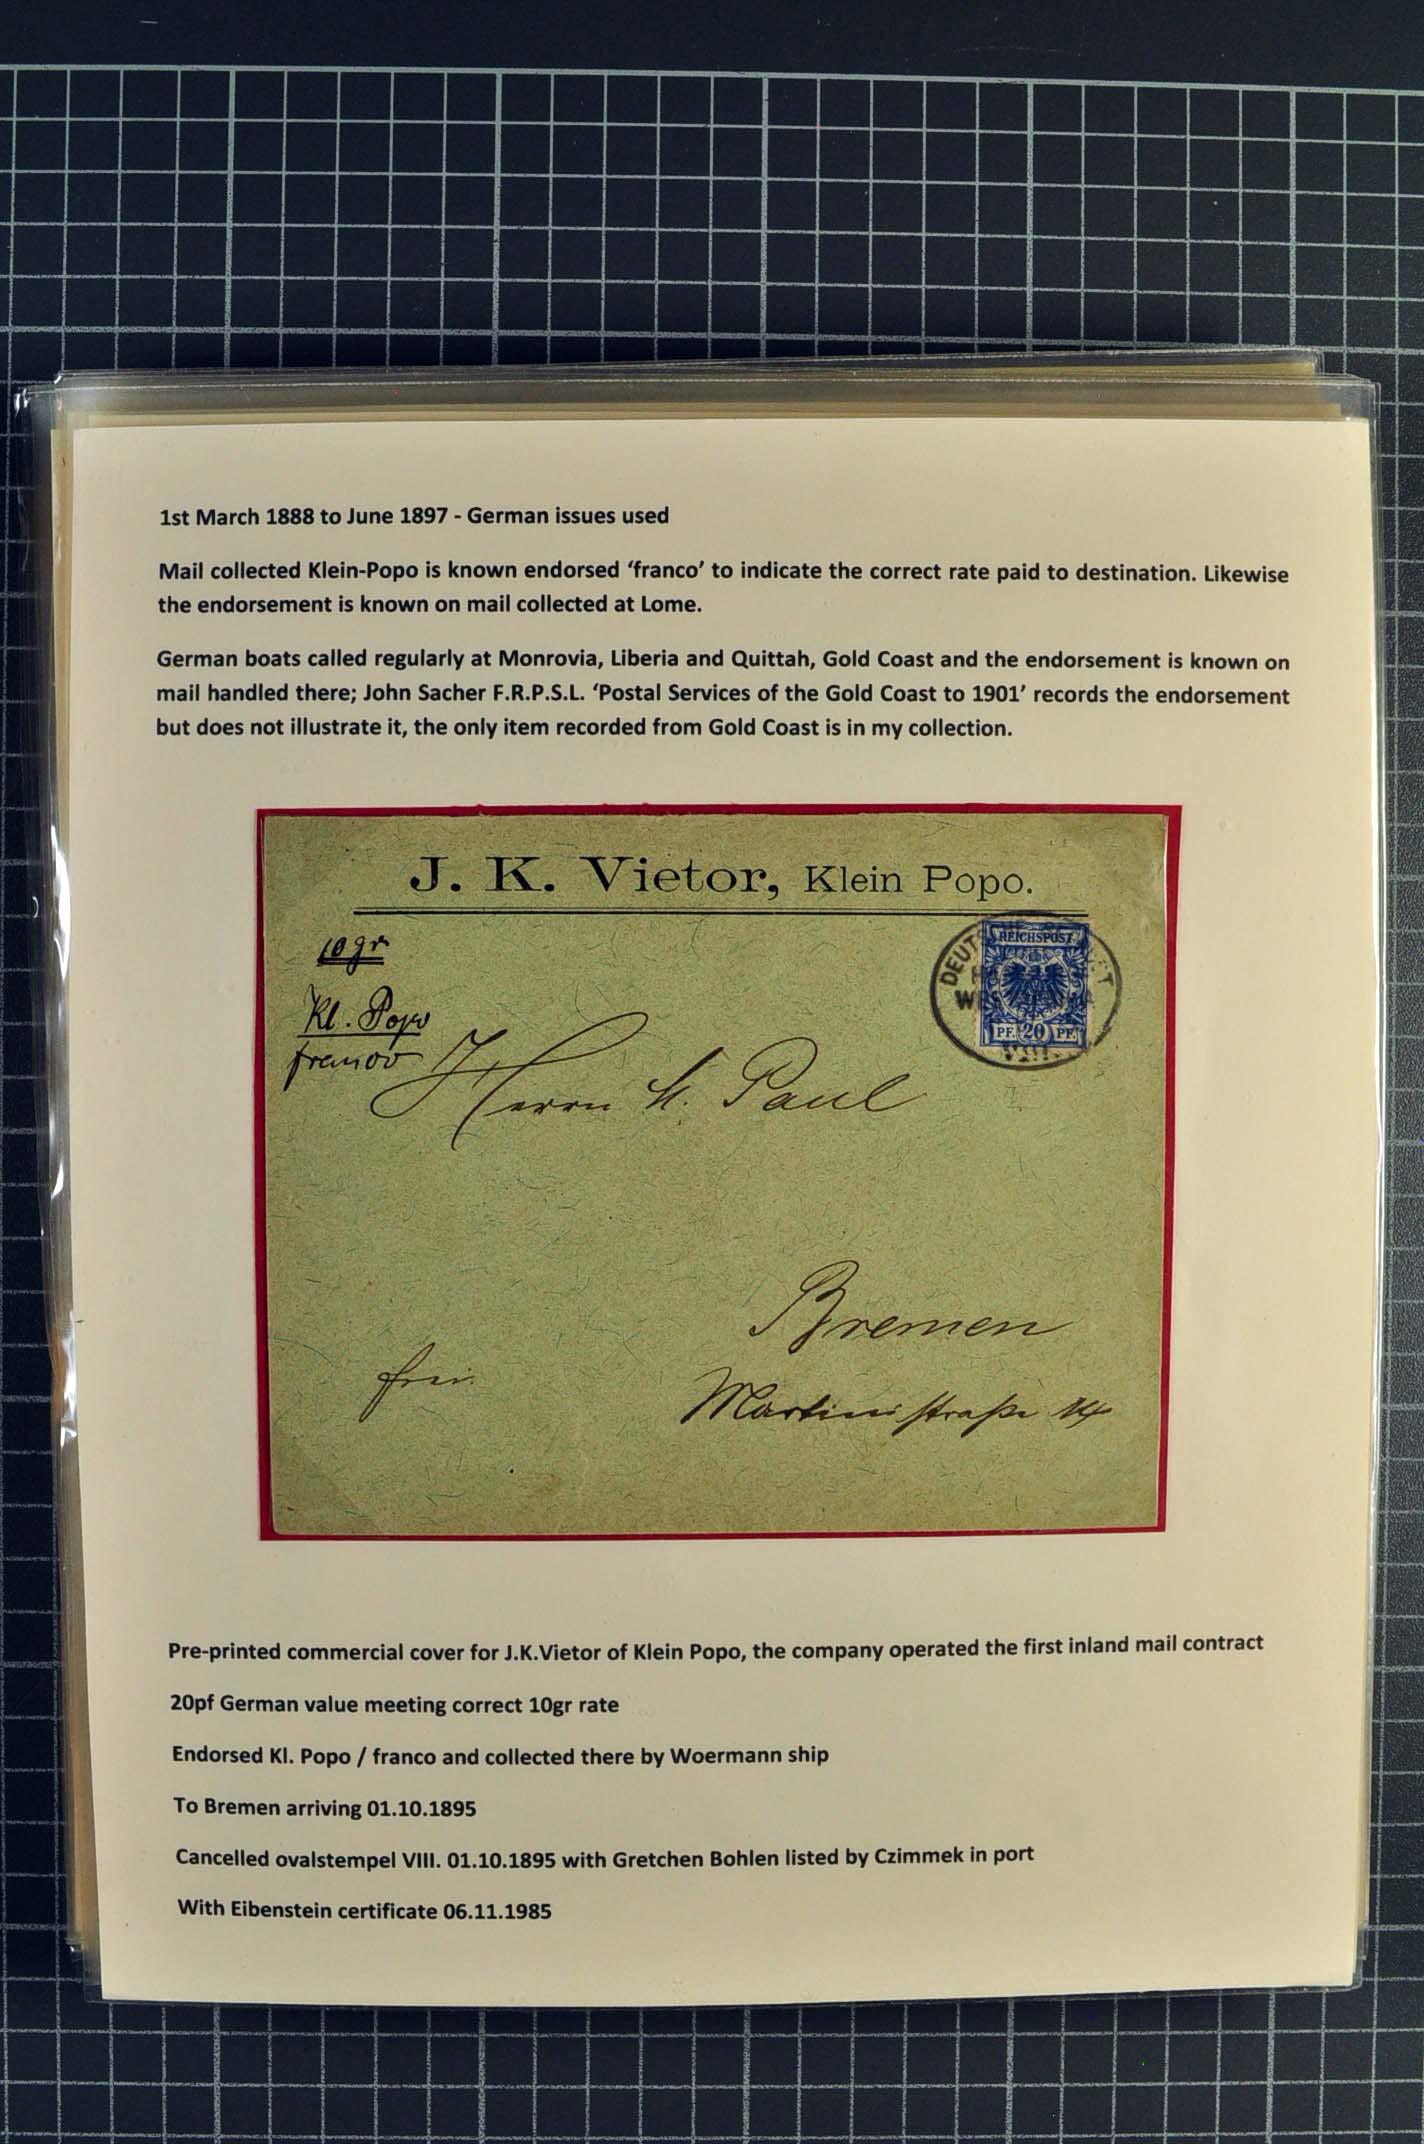 1st March 1888 to June 1897 - German issues used
Mail collected Klein-Popo is known endorsed ‘franco’ to indicate the correct rate paid to destination. Likewise
the endorsement is known on mail collected at Lome.
German boats called regularly at Monrovia, Liberia and Quittah, Gold Coast and the endorsement is known on
mail handled there; John Sacher F.R.P.S.L. ‘Postal Services of the Gold Coast to 1901’ records the endorsement
but does not illustrate it, the only item recorded from Gold Coast is in my collection.
J. K. Vietor, Klein Popo.
10gr
Kl. Popo
franco
REICHSPOST
PF. 20 PF.
VIII.
Herrn Paul
Bremen
Martinistraße 14
frei.
Pre-printed commercial cover for J.K.Vietor of Klein Popo, the company operated the first inland mail contract
20pf German value meeting correct 10gr rate
Endorsed Kl. Popo / franco and collected there by Woermann ship
To Bremen arriving 01.10.1895
Cancelled ovalstempel VIII. 01.10.1895 with Gretchen Bohlen listed by Czimmek in port
With Eibenstein certificate 06.11.1985